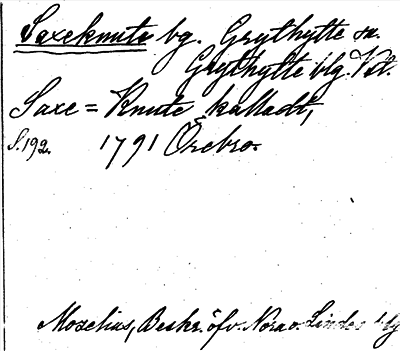 Saxeknuts bg. Grythytte sn.
Grythytte blg. Vstm.
Saxe = Knuts kalladt,
S. 192. 1791 Örebro.
Moxelius, Beskr. öfv. Nora o. Lindes blg